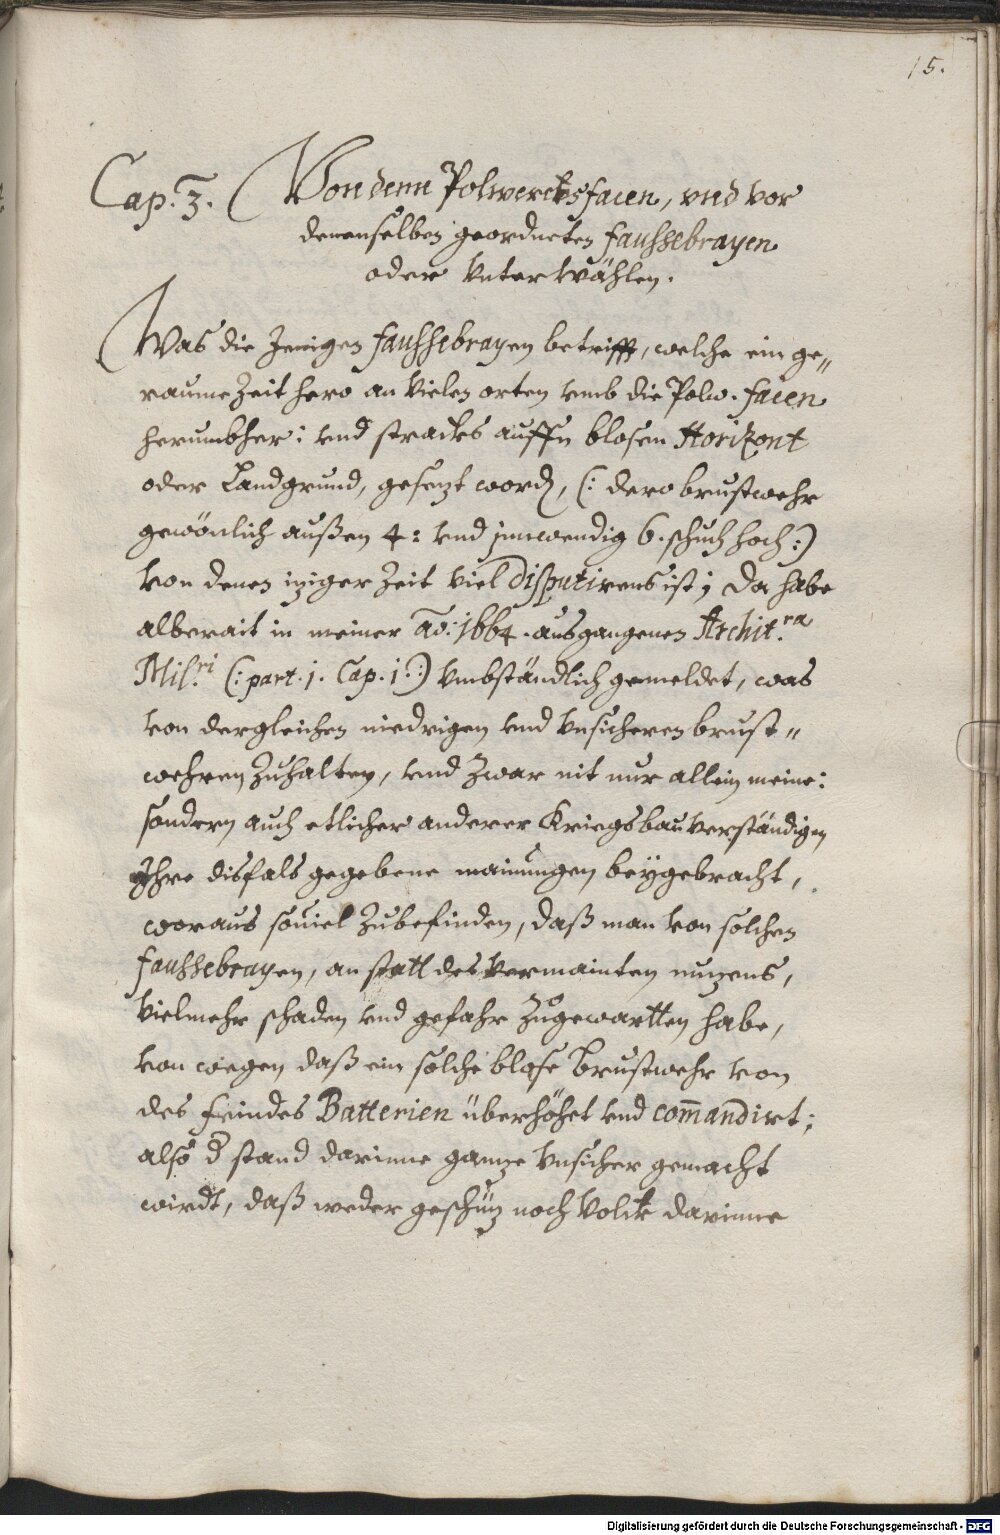 15.
Cap. 3. Von denn Polwercksfacen, vnd vor
denenselben geordneten faussebrayen
oder Vnterwählen.
Was die Jenigen faussebrayen betrifft, welche ein ge„
raume Zeit hero an Vielen orten vmb die Polw. facen
herumbher: vnd stracks auffn blosen Horizont
oder Landgrund, gesezt word, (: dero brustwehr
gewöönlich außen 4: vnd jnnwendig 6. schuch hoch :)
von denen iziger Zeit viel disputirens ist; Da habe
alberait in meiner Aõ: 1664. ausgangenen Archit.ra
Mil.ri (: part. j. Cap. j. :) Vmbständlich gemeldet, was
von dergleichen niedrigen vnd Vnsicheren brust„
wehren Zuhalten, vnd Zwar nit nur allein meine:
sondern auch etlicher anderer Kriegsbauverständigen
Ihre disfals gegebene mainungen beÿgebracht,
woraus souiel Zubefinden, daß man von solchen
faussebrayen, an statt des Vermainten nuzens,
Vielmehr schaden vnd gefahr Zugewartten habe,
von wegen daß ein solche blose Brustwehr von
des feindes Batterien überhöhet vnd com̄andirt;
also d stand darinne ganze Vnsicher gemacht
wirdt, daß weder geschüz noch Volck darinne
Digitalisierung gefördert durch die Deutsche Forschungsgemeinschaft - DFG